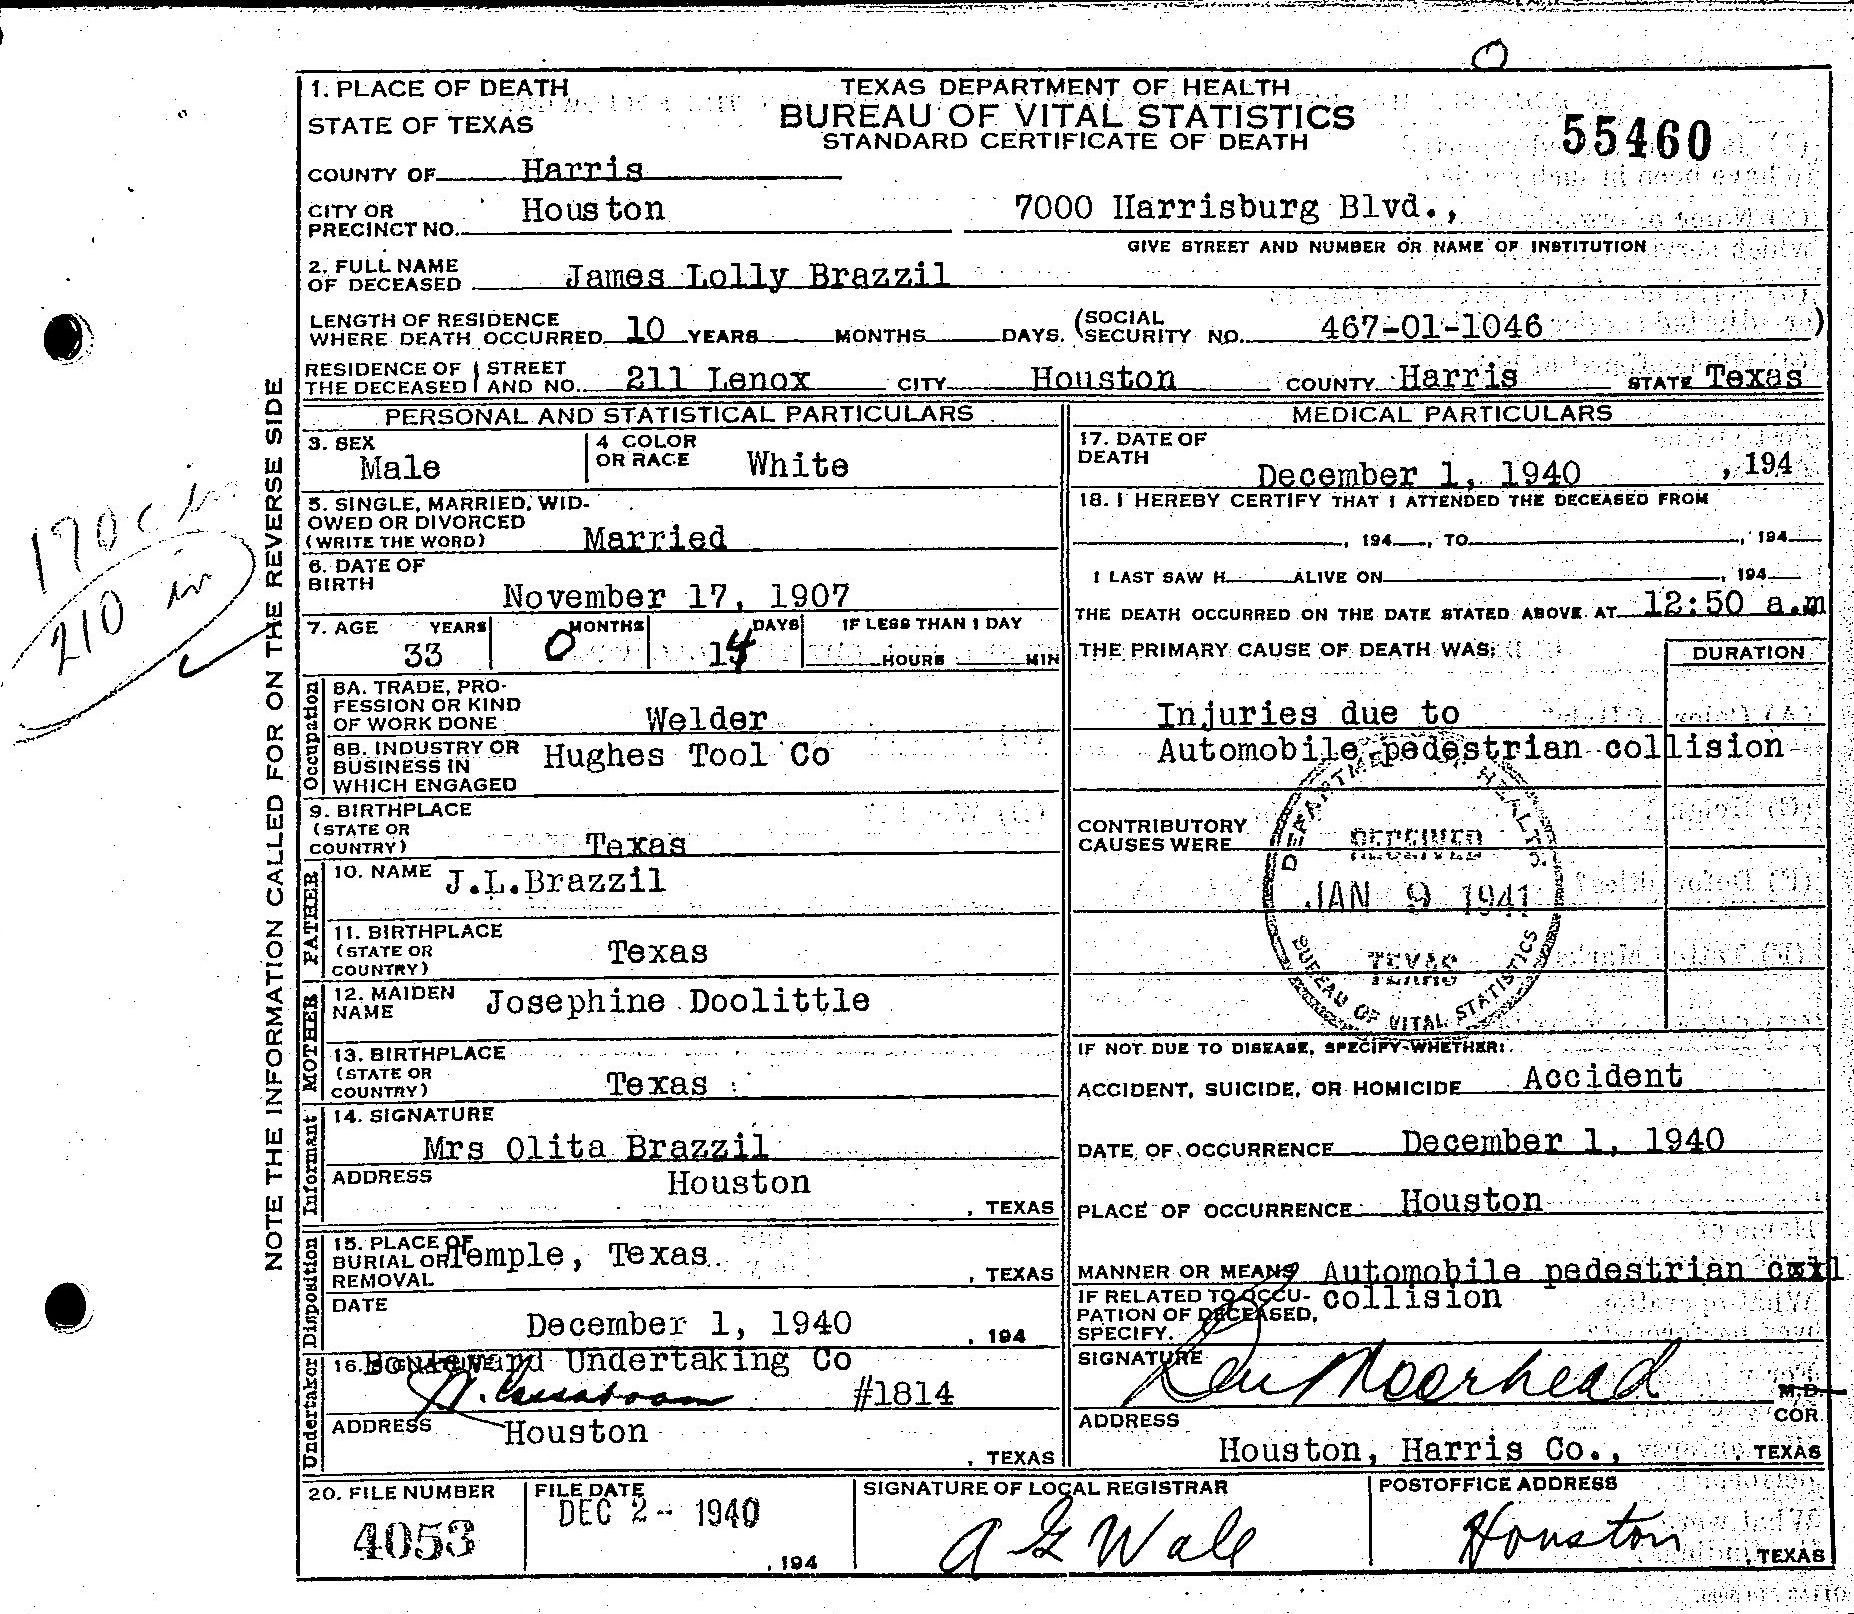 1. PLACE OF DEATH
STATE OF TEXAS
TEXAS DEPARTMENT OF HEALTH
BUREAU OF VITAL STATISTICS
STANDARD CERTIFICATE OF DEATH
55460
COUNTY OF Harris
CITY OR PRECINCT NO. Houston 7000 Harrisburg Blvd.,
GIVE STREET AND NUMBER OR NAME OF INSTITUTION
2. FULL NAME OF DECEASED James Lolly Brazzil
LENGTH OF RESIDENCE WHERE DEATH OCCURRED 10 YEARS MONTHS DAYS. (SOCIAL SECURITY NO. 467-01-1046 )
RESIDENCE OF THE DECEASED STREET AND NO. 211 Lenox CITY Houston COUNTY Harris STATE Texas
NOTE THE INFORMATION CALLED FOR ON THE REVERSE SIDE
170c
210
PERSONAL AND STATISTICAL PARTICULARS
3. SEX Male
4 COLOR OR RACE White
5. SINGLE, MARRIED, WIDOWED OR DIVORCED (WRITE THE WORD) Married
6. DATE OF BIRTH November 17, 1907
7. AGE YEARS 33 MONTHS 0 DAYS 14 IF LESS THAN 1 DAY HOURS MIN
Occupation
8A. TRADE, PROFESSION OR KIND OF WORK DONE Welder
8B. INDUSTRY OR BUSINESS IN WHICH ENGAGED Hughes Tool Co
9. BIRTHPLACE (STATE OR COUNTRY) Texas
FATHER
10. NAME J.L.Brazzil
11. BIRTHPLACE (STATE OR COUNTRY) Texas
MOTHER
12. MAIDEN NAME Josephine Doolittle
13. BIRTHPLACE (STATE OR COUNTRY) Texas
Informant
14. SIGNATURE Mrs Olita Brazzil
ADDRESS Houston , TEXAS
Disposition
15. PLACE OF BURIAL OR REMOVAL Temple, Texas , TEXAS
DATE December 1, 1940 , 194
Undertaker
16. SIGNATURE Boulevard Undertaking Co
#1814
ADDRESS Houston , TEXAS
MEDICAL PARTICULARS
17. DATE OF DEATH December 1, 1940 , 194
18. I HEREBY CERTIFY THAT I ATTENDED THE DECEASED FROM
, 194 , TO , 194
I LAST SAW H ALIVE ON , 194
THE DEATH OCCURRED ON THE DATE STATED ABOVE AT 12:50 a.m
THE PRIMARY CAUSE OF DEATH WAS: DURATION
Injuries due to
Automobile pedestrian collision
CONTRIBUTORY CAUSES WERE
DEPARTMENT OF HEALTH
RECEIVED
JAN 9 1941
TEXAS
BUREAU OF VITAL STATISTICS
IF NOT DUE TO DISEASE, SPECIFY WHETHER:
ACCIDENT, SUICIDE, OR HOMICIDE Accident
DATE OF OCCURRENCE December 1, 1940
PLACE OF OCCURRENCE Houston
MANNER OR MEANS Automobile pedestrian cxxl
collision
IF RELATED TO OCCUPATION OF DECEASED, SPECIFY.
SIGNATURE Ben Moorhead M.D.
COR.
ADDRESS
Houston, Harris Co., , TEXAS
20. FILE NUMBER 4053
FILE DATE DEC 2- 1940 , 194
SIGNATURE OF LOCAL REGISTRAR A G Wale
POSTOFFICE ADDRESS Houston , TEXAS